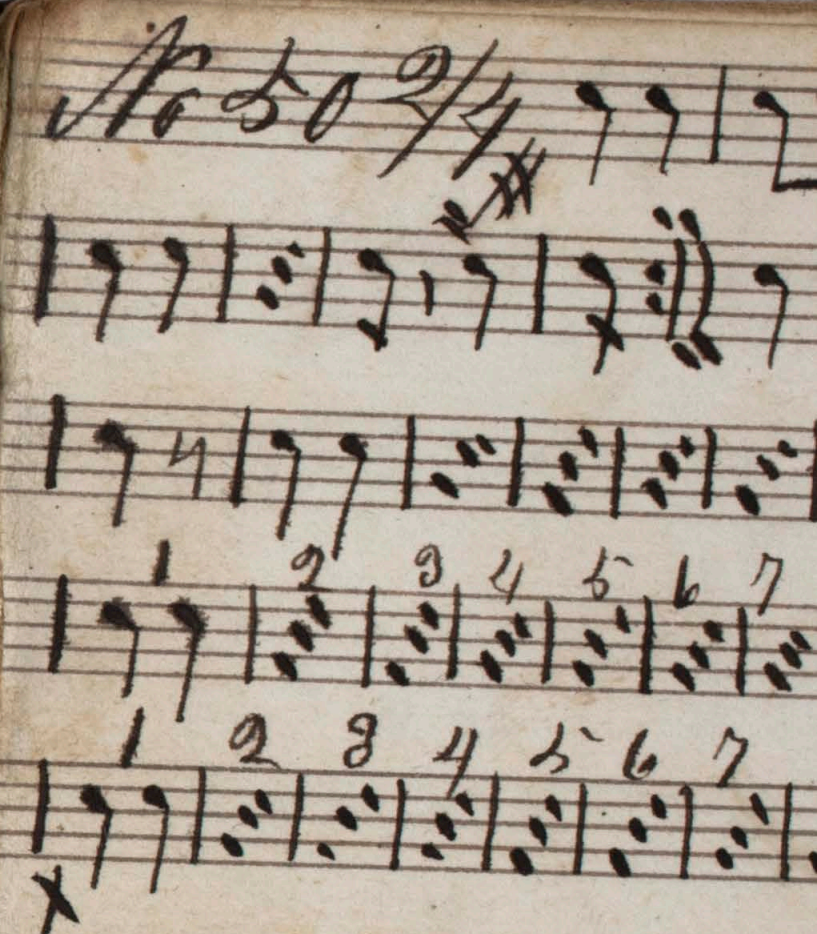 No 50 2/4
1 2 3 4 5 6 7
1 2 3 4 5 6 7